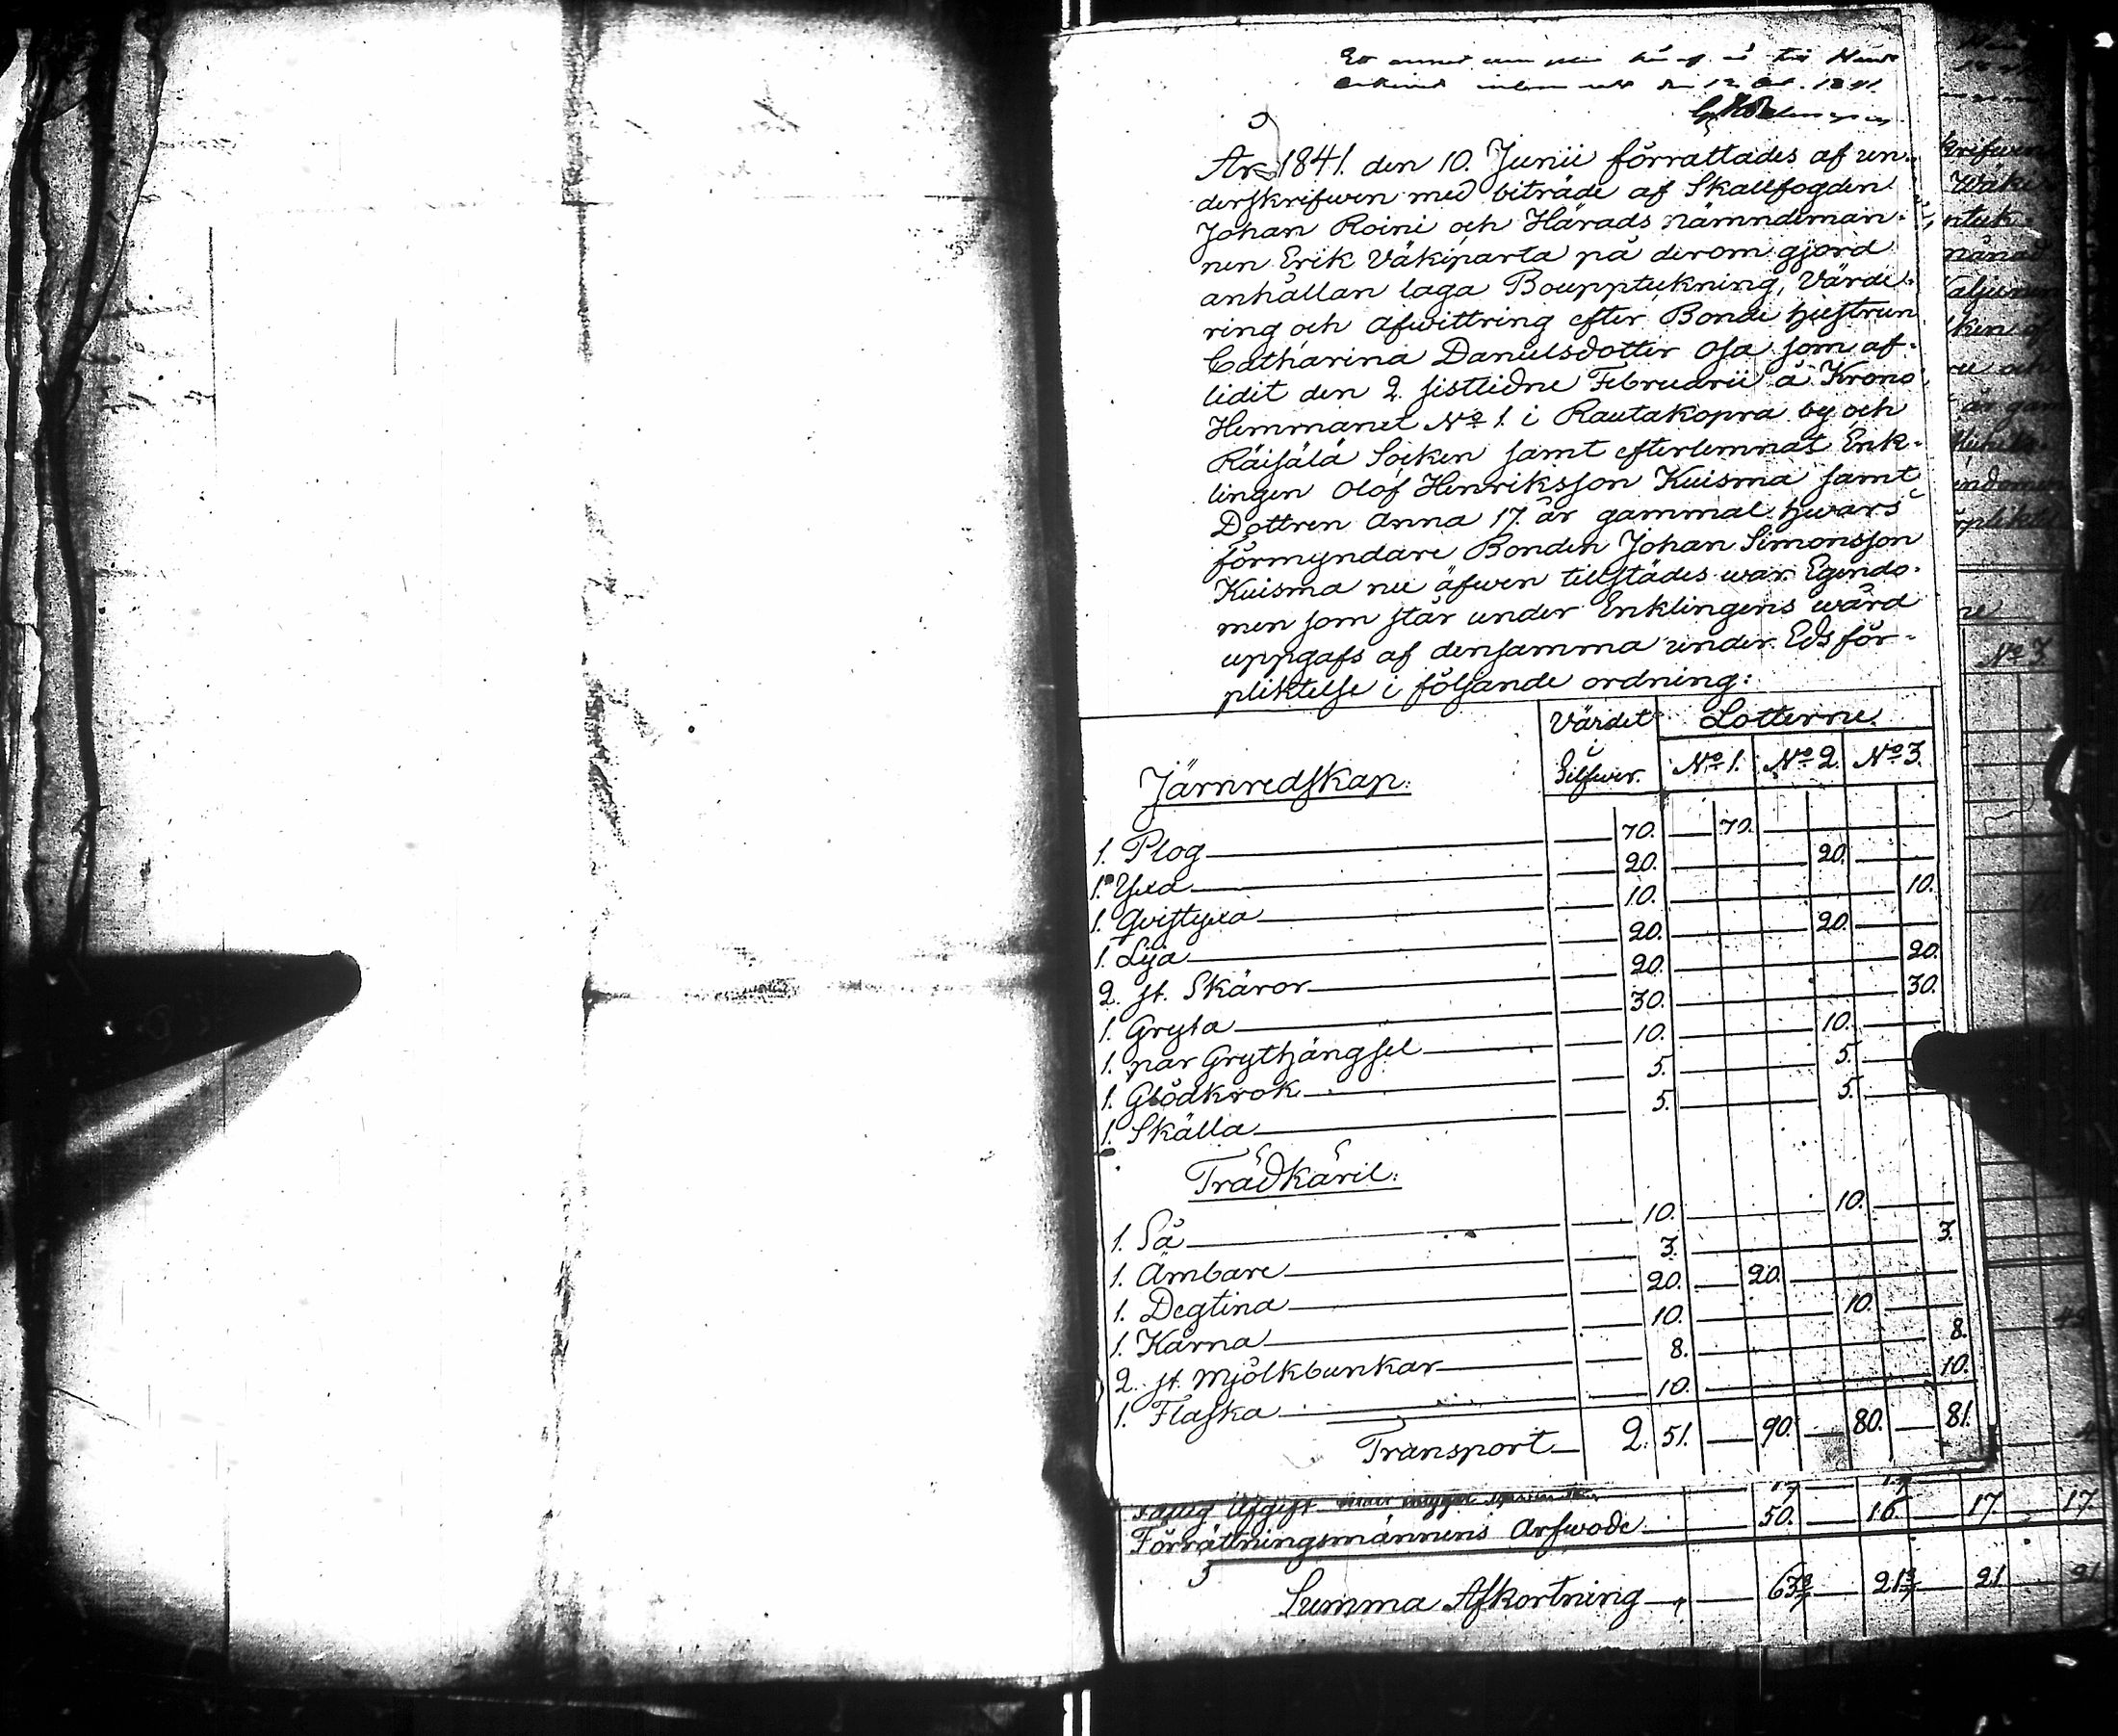 den 12 Oct. 1841.
År 1841. den 10. Junii förrättades af un-
derskrifwen med biträde af Skallfogden
Johan Roini och Härads nämndeman-
nen Erik Väkiparta på derom gjord
anhållan laga Boupptekning, Värde-
ring och afwittring efter Bonde hustrun
Catharina Danielsdotter Osa som af-
lidit den 2 sistledne Februarii å Krono
Hemmanet No 1. i Rautakopra by och
Räisälä Socken samt efterlemnat Enk-
lingen Olof Henriksson Kuisma samt
Dottren Anna 17. år gammal hwars
förmyndare Bonden Johan Simonsson
Kuisma nu äfwen tillstädes war. Egendo-
men som står under Enklingens wård
uppgafs af densamma under Edsför-
pliktelse i följande ordning:
Värdet i Silfwer. Lotterne.
Järnredskap: No 1. No 2. No 3.
1. Plog 70. 70.
1. Yxa 20. 20.
1. Qvistyxa 10. 10.
1. Lija 20. 20.
2. st. Skäror 20. 20.
1. Gryta 30. 30.
1. par Grythängsel 10. 10.
1. Glödkrok 5. 5.
1. Skälla 5. 5.
Trädkäril:
1. Så 10. 10.
1. Ämbare 3. 3.
1. Degtina 20. 20.
1. Kärna 10. 10.
2. st. Mjölkbunkar 8. 8.
1. Flaska 10. 10.
Transport 2. 51. 90. 80. 81.
Fattig Afgift
Förrättningsmännens Arfwode 50. 16 17. 17.
Summa Afkortning 63 3/7 21 3/7 21 21